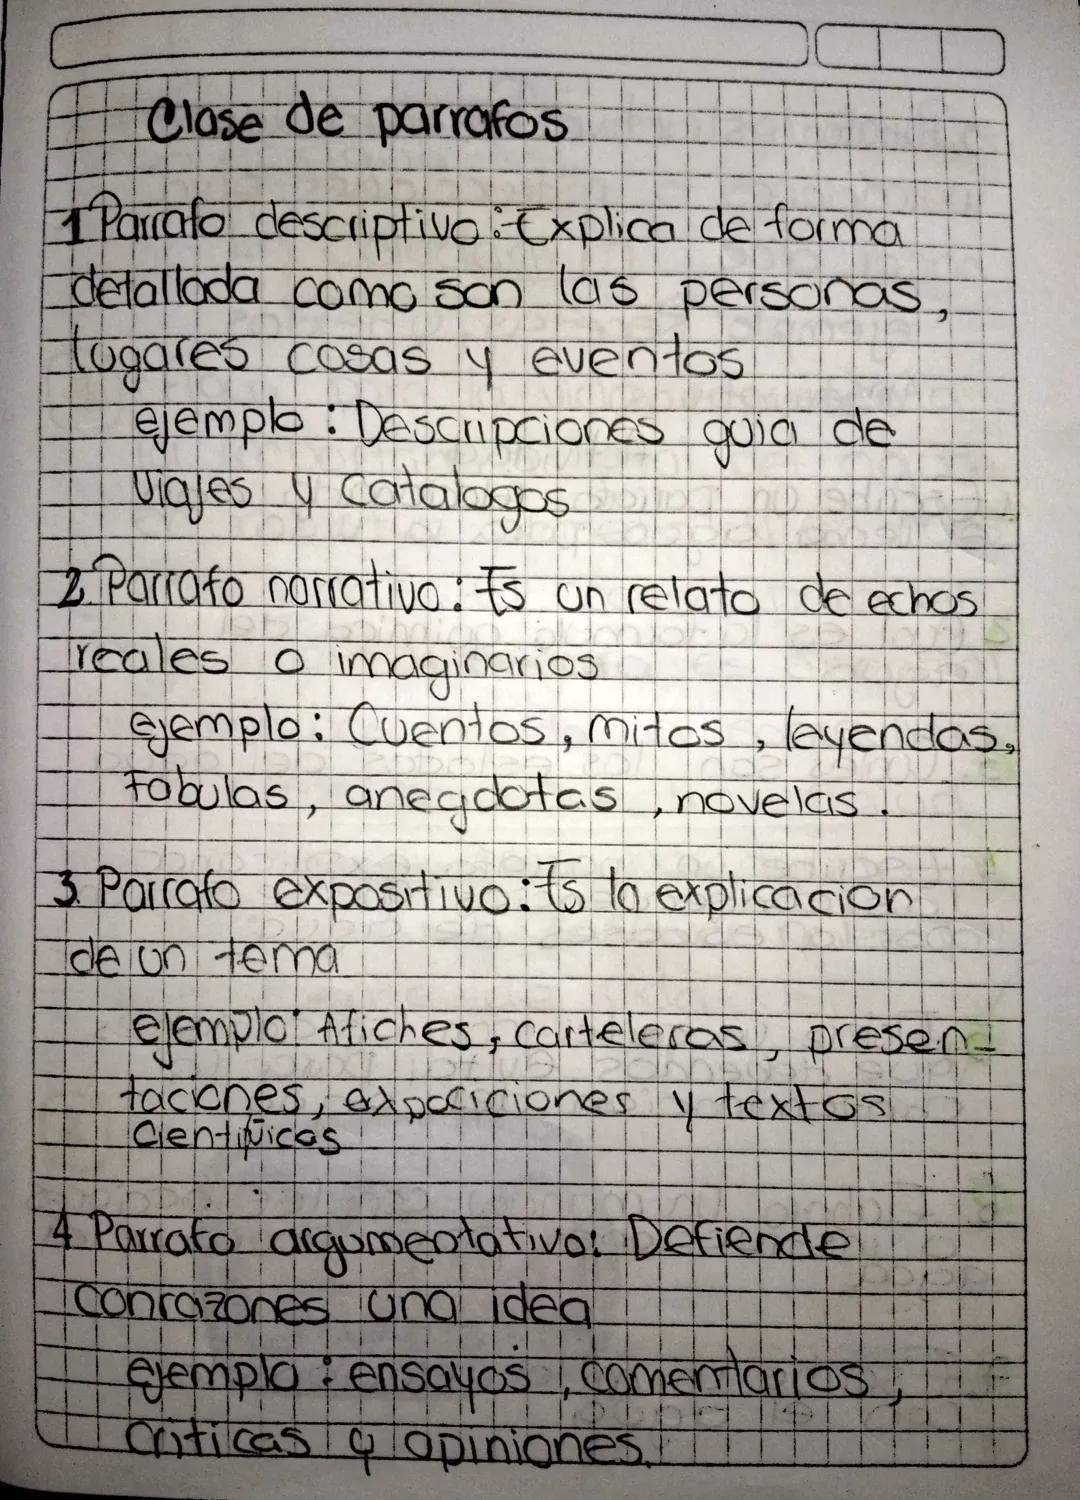 Clase de parrafos
1 Parrafo descriptivo: Explica de forma
detallada como son las personas,
lugares cosas y eventos
ejemplo: Descripciones guia de
viajes y catalogos
2. Parrafo narrativo: Es un relato de echos
reales o imaginarios
ejemplo: Cuentos, mitos, leyendas,
fabulas, anegdotas, novelas.
3. Parrafo expositivo: Es la explicacion
de un tema
ejemplo: Afiches, carteleras, presen-
taciones, expociciones y textos
Cientificos
4 Parrafo argumentativo: Defiende
con razones una idea
ejemplo: ensayos, comentarios,
criticas y opiniones.